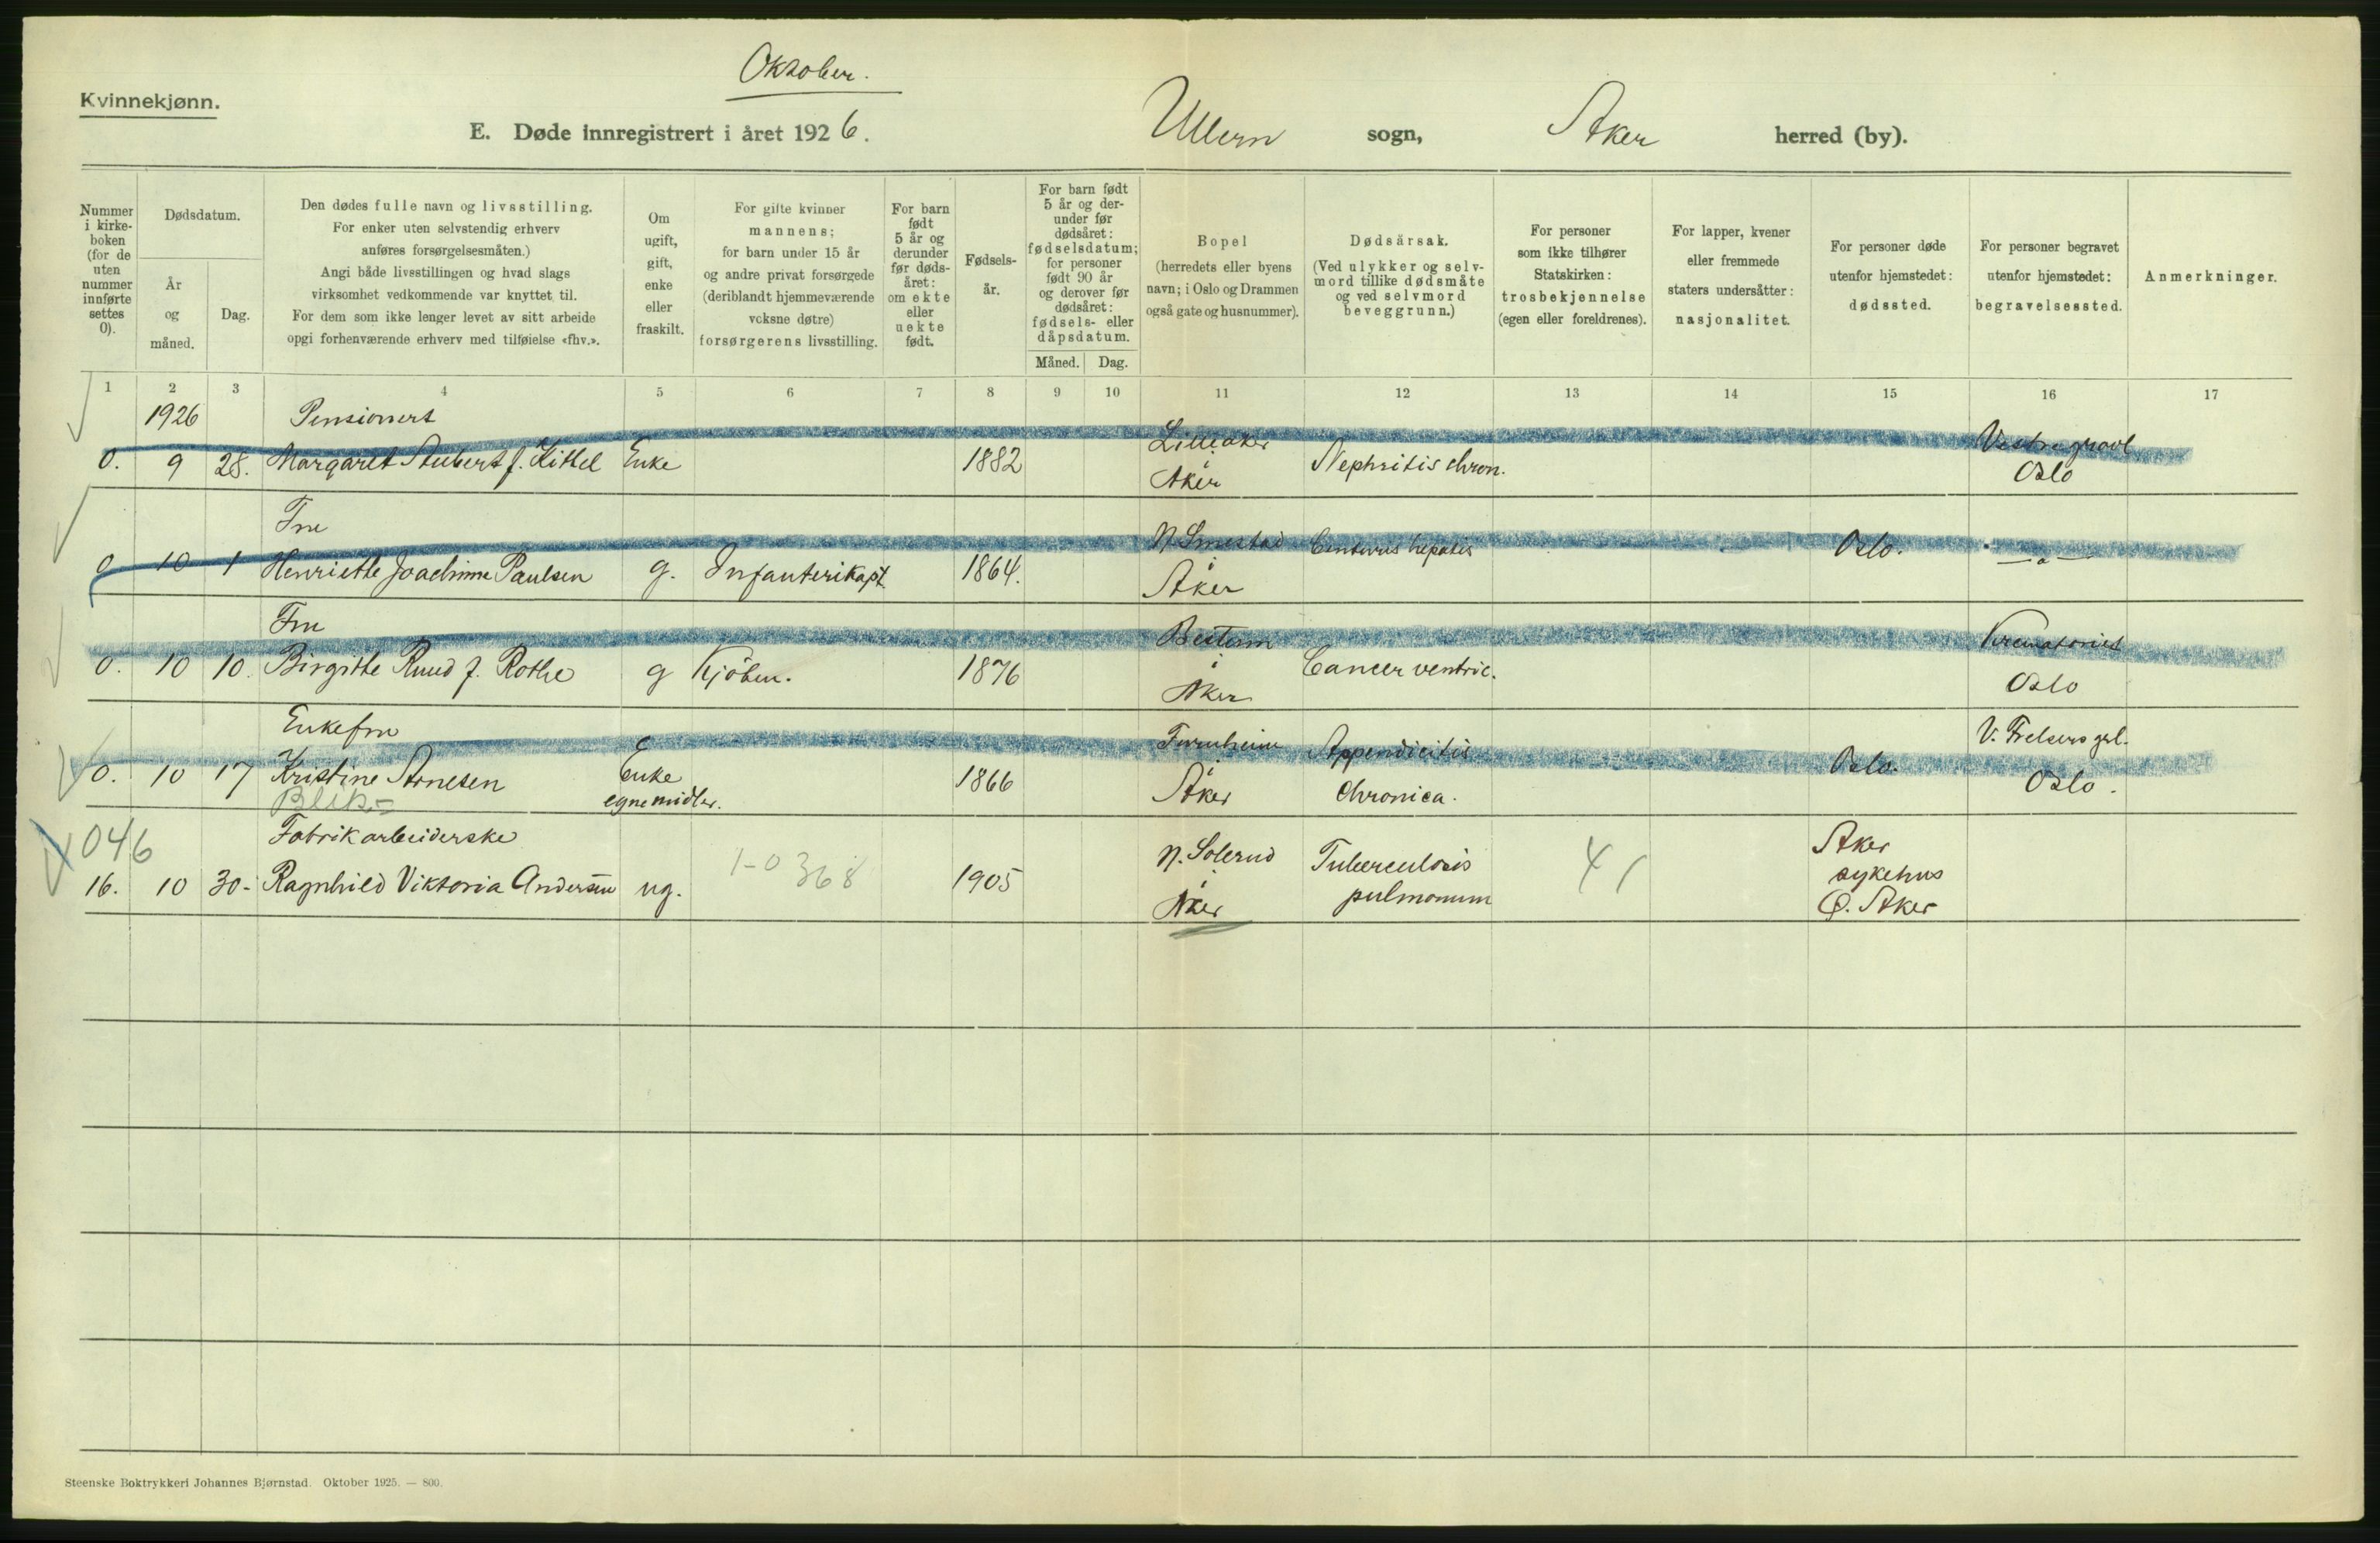 Oktober.
Kvinnekjønn.
E. Døde innregistrert i året 1926. Ullern sogn, Aker herred (by).
Nummer i kirke-boken (for de uten nummer innførte settes 0).
Dødsdatum.
År og måned.
Dag.
Den dødes fulle navn og livsstilling.
For enker uten selvstendig erhverv
anføres forsørgelsesmåten.)
Angi både livsstillingen og hvad slags
virksomhet vedkommende var knyttet til.
For dem som ikke lenger levet av sitt arbeide
opgi forhenværende erhverv med tilføielse «fhv.».
Om ugift, gift, enke eller fraskilt.
For gifte kvinner
mannens;
for barn under 15 år
og andre privat forsørgede
(deriblandt hjemmeværende
voksne døtre)
forsørgerens livsstilling.
For barn født 5 år og derunder før døds-året: om ekte eller uekte født.
Fødsels-år.
For barn født
5 år og der-
under før
dødsåret:
fødselsdatum;
for personer
født 90 år
og derover før
dødsåret:
fødsels- eller
dåpsdatum.
Måned. Dag.
Bopel
(herredets eller byens
navn; i Oslo og Drammen
også gate og husnummer).
Dødsårsak.
(Ved ulykker og selv-
mord tillike dødsmåte
og ved selvmord
beveggrunn.)
For personer
som ikke tilhører
Statskirken:
trosbekjennelse
(egen eller foreldrenes).
For lapper, kvener
eller fremmede
staters undersåtter:
nasjonalitet.
For personer døde
utenfor hjemstedet:
dødssted.
For personer begravet
utenfor hjemstedet:
begravelsessted.
Anmerkninger.
1 2 3 4 5 6 7 8 9 10 11 12 13 14 15 16 17
1926 Pensionert
Lilleaker Vestre gravl.
0. 9 28. Margaret Stubert f. Kittel Enke 1882 i Nephritis chron.
Aker Oslo
Fru
N. Smestad hepatis Oslo. —"—
0 10 1 Henriette Joachime Paulsen g. Infanterikapt. 1864. i
Aker
Fru
Bestum Krematoriet
0. 10 10. Birgitte Ruud f. Rothe g Kjöbm. 1876 i Cancer ventric.
Aker Oslo
Enkefru V. Frelsers grl.
Furuheim Appendicitis Oslo.
0. 10 17 Kristine Arnesen Enke 1866 i
egne midler. Aker Chronica. Oslo.
Blik-
046 Fabrikarbeiderske 1-0368 N. Solerud Tuberculosis 41 Aker
16. 10 30- Ragnhild Viktoria Andersen ug. 1905 i pulmonum sykehus
Aker Ø. Aker
Steenske Boktrykkeri Johannes Bjørnstad. Oktober 1925. — 800.